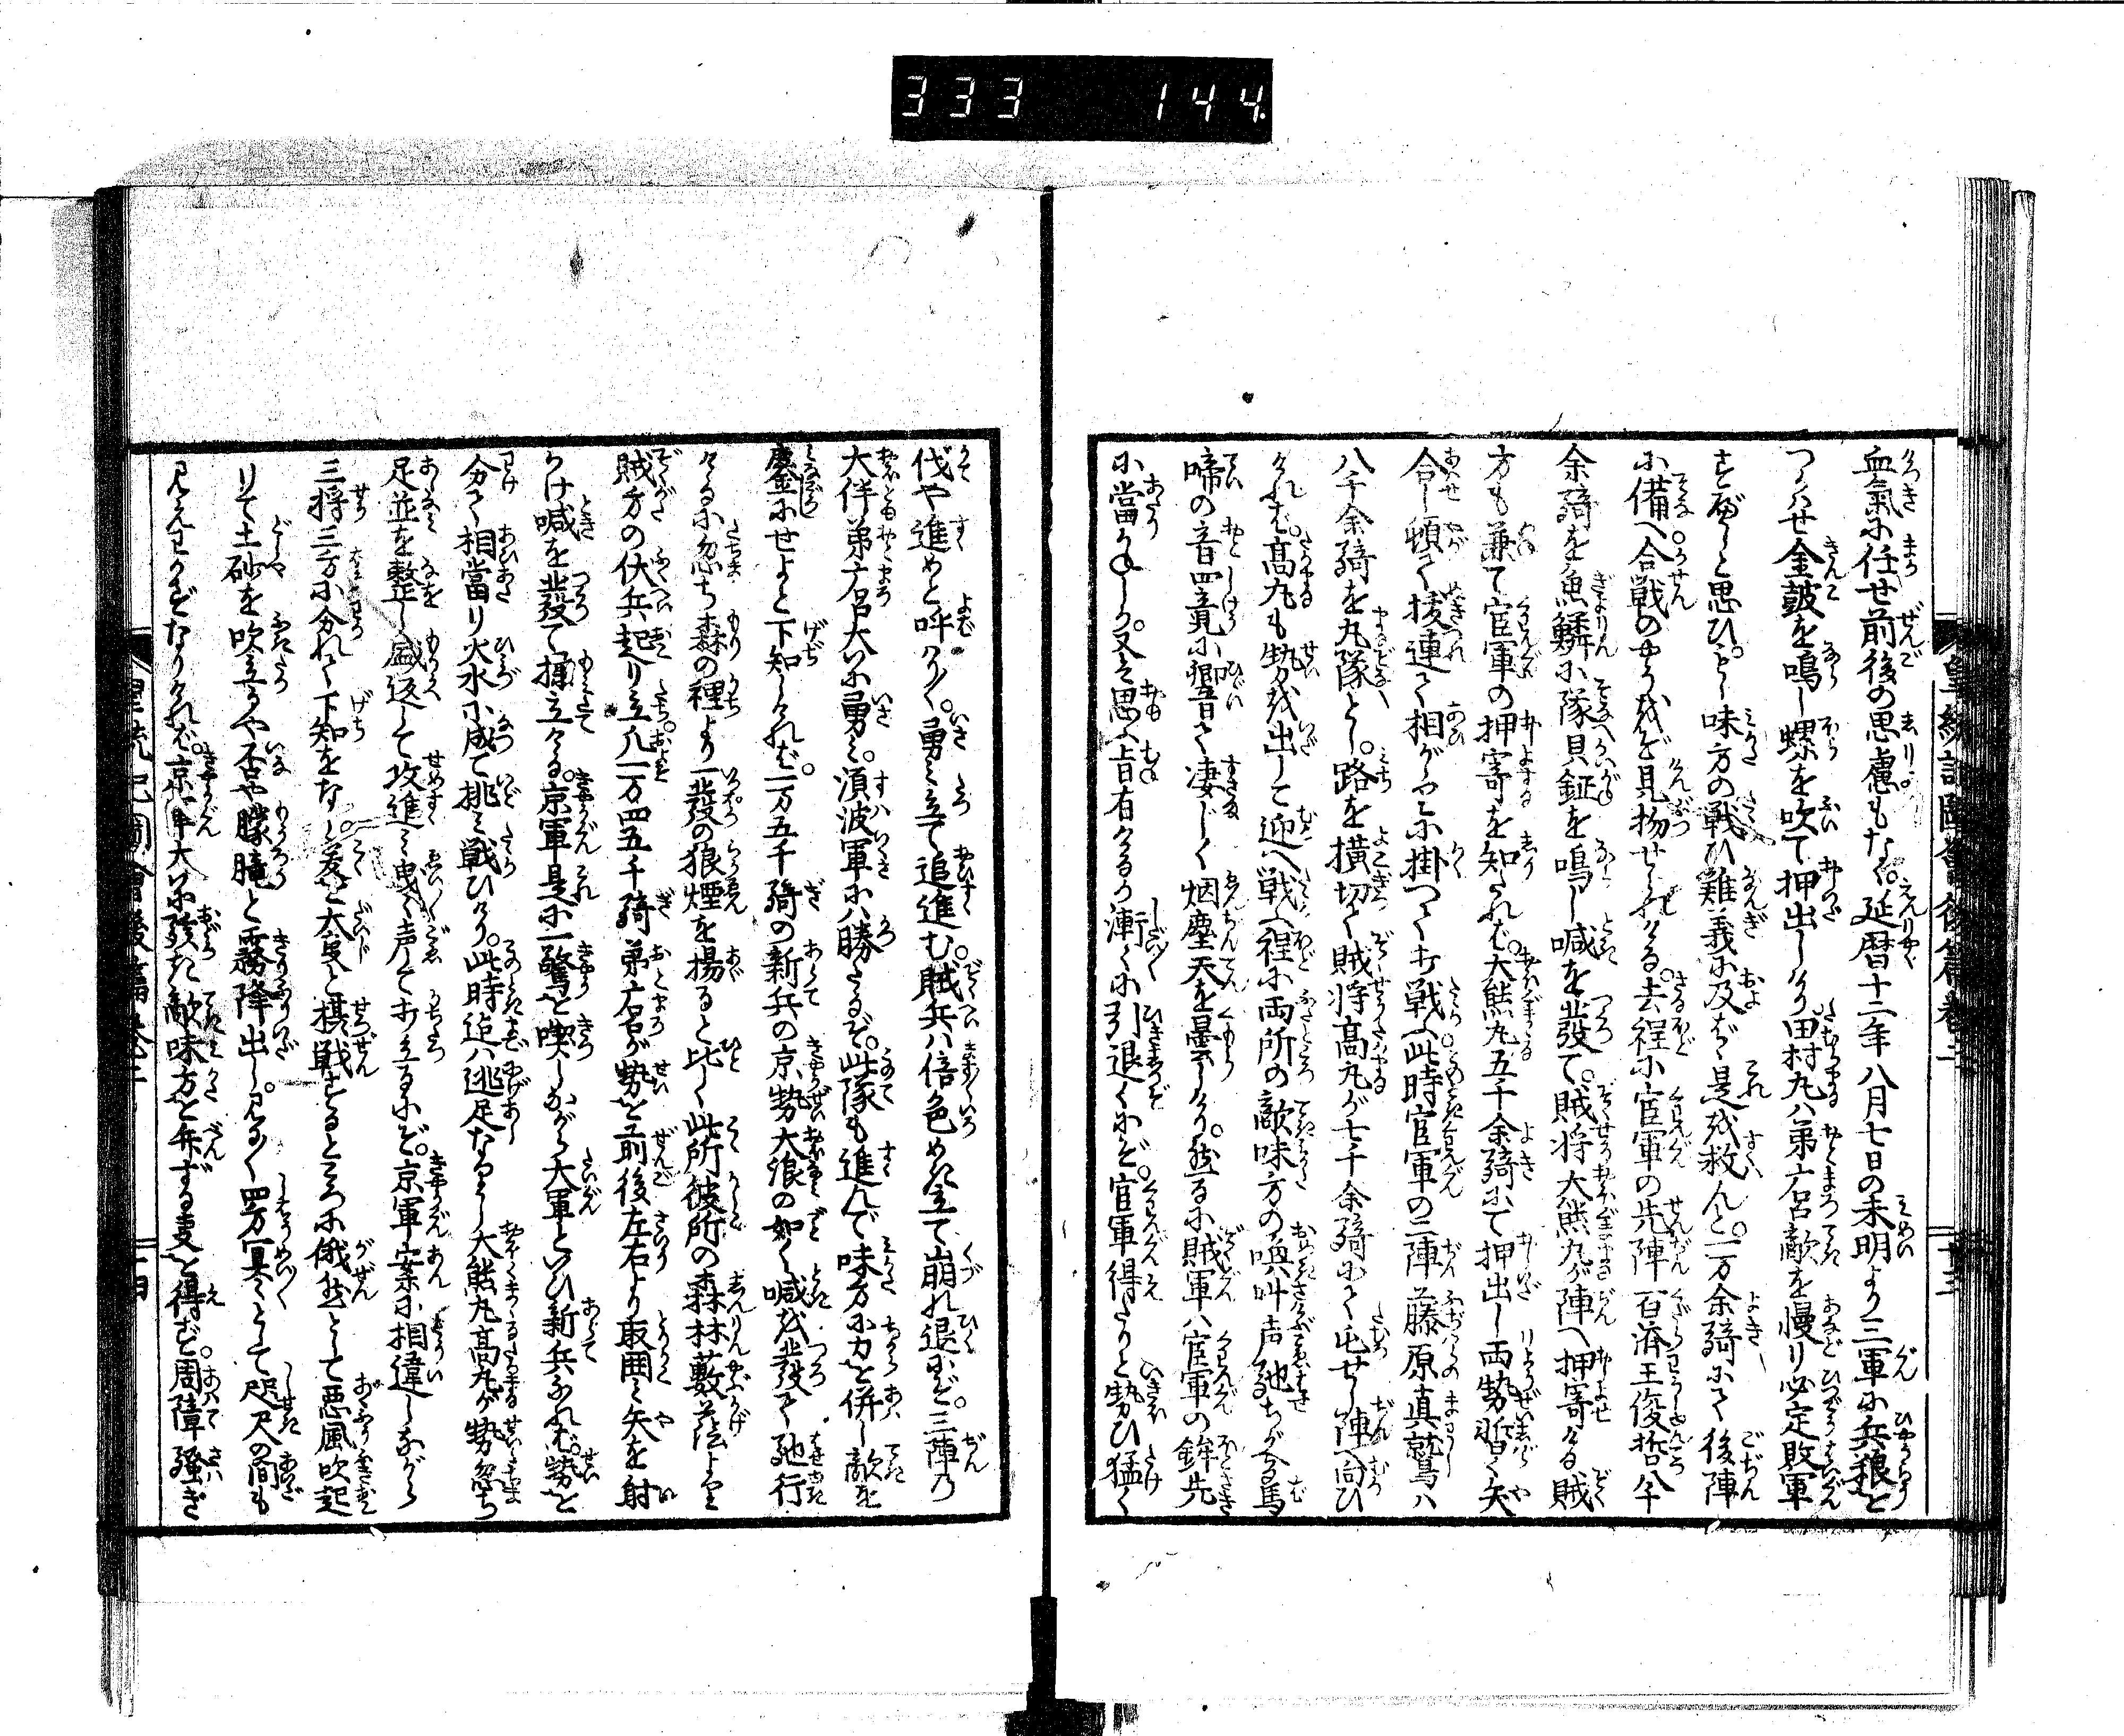 333 144
皇統記圖會後篇巻二 十三
血氣に任せ前後の思慮もなく。延暦十二年八月七日の未明より三軍に兵粮を
つかはせ金鼓を鳴し螺を吹て押出しけり田村丸ハ弟石呂敵を慢り必定敗軍
すべしと思ひ。もし味方の戦ひ難義に及ばゞ是を救んと。一万余騎にて後陣
に備へ合戦のやうをぞ見物せられける。去程に官軍の先陣百済王俊哲八千
余騎を魚鱗に隊貝鉦を鳴し喊を發て。賊将大熊丸が陣へ押寄ける賊
方も兼て官軍の押寄を知たれバ。大熊丸五千余騎にて押出し両勢暫く矢
合し頓て抜連て相がゝりに掛つて戦ふ此時官軍の二陣藤原真鷲ハ
八千余騎を丸隊とし。路を横切て賊将髙丸が七千余騎にて屯せし陣へ向ひ
けれバ。髙丸も勢を出して迎へ戦ふ程に両所の敵味方の喚叫声馳ちがふ馬
啼の音四竟に響て凄じく烟塵天を曇しけり。然るに賊軍ハ官軍の鉾先
に當りかねしか。又ハ思ふ旨有けるか漸々に引退くにぞ。官軍得たりと勢ひ猛く
伐や進めと呼はり〳〵。勇ミ立て追進む。賊兵ハ倍色めき立て崩れ退にぞ。三陣の
大伴弟石呂大いに勇ミ。須波軍にハ勝たるぞ。此隊も進んで味方に力を併し敵を
鏖にせよと下知しけれバ。一万五千騎の新兵の京勢大浪の如く喊を發て馳行
けるに忽ち森の裡より一發の狼煙を揚ると比しく此所彼所の森林藪蔭より
賊方の伏兵起り立ハ一万四五千騎弟石呂が勢を前後左右より取囲ミ矢を射
かけ喊を發て揉立ける。京軍是に一驚を喫しながら大軍といひ新兵なれバ。勢を
分て相當り火水に成て挑ミ戦ひけり。此時迄ハ逃足なりし大熊丸髙丸が勢忽ち
足並を整し盛返して攻進ミ曳々声してかゝるにぞ。京軍案に相違しながら
三将三方に分れて下知をなし爰を大事と拱戦するところに俄然として悪風吹起
りて土砂を吹立るや否や朦朧と霧降出し。見る〳〵四方冥々として咫尺の間も
見えわかずなりけれバ。京軍大いに駭き敵味方を弁ずる事を得ず。周障騒ぎ
皇統記圖會後篇巻二 十四